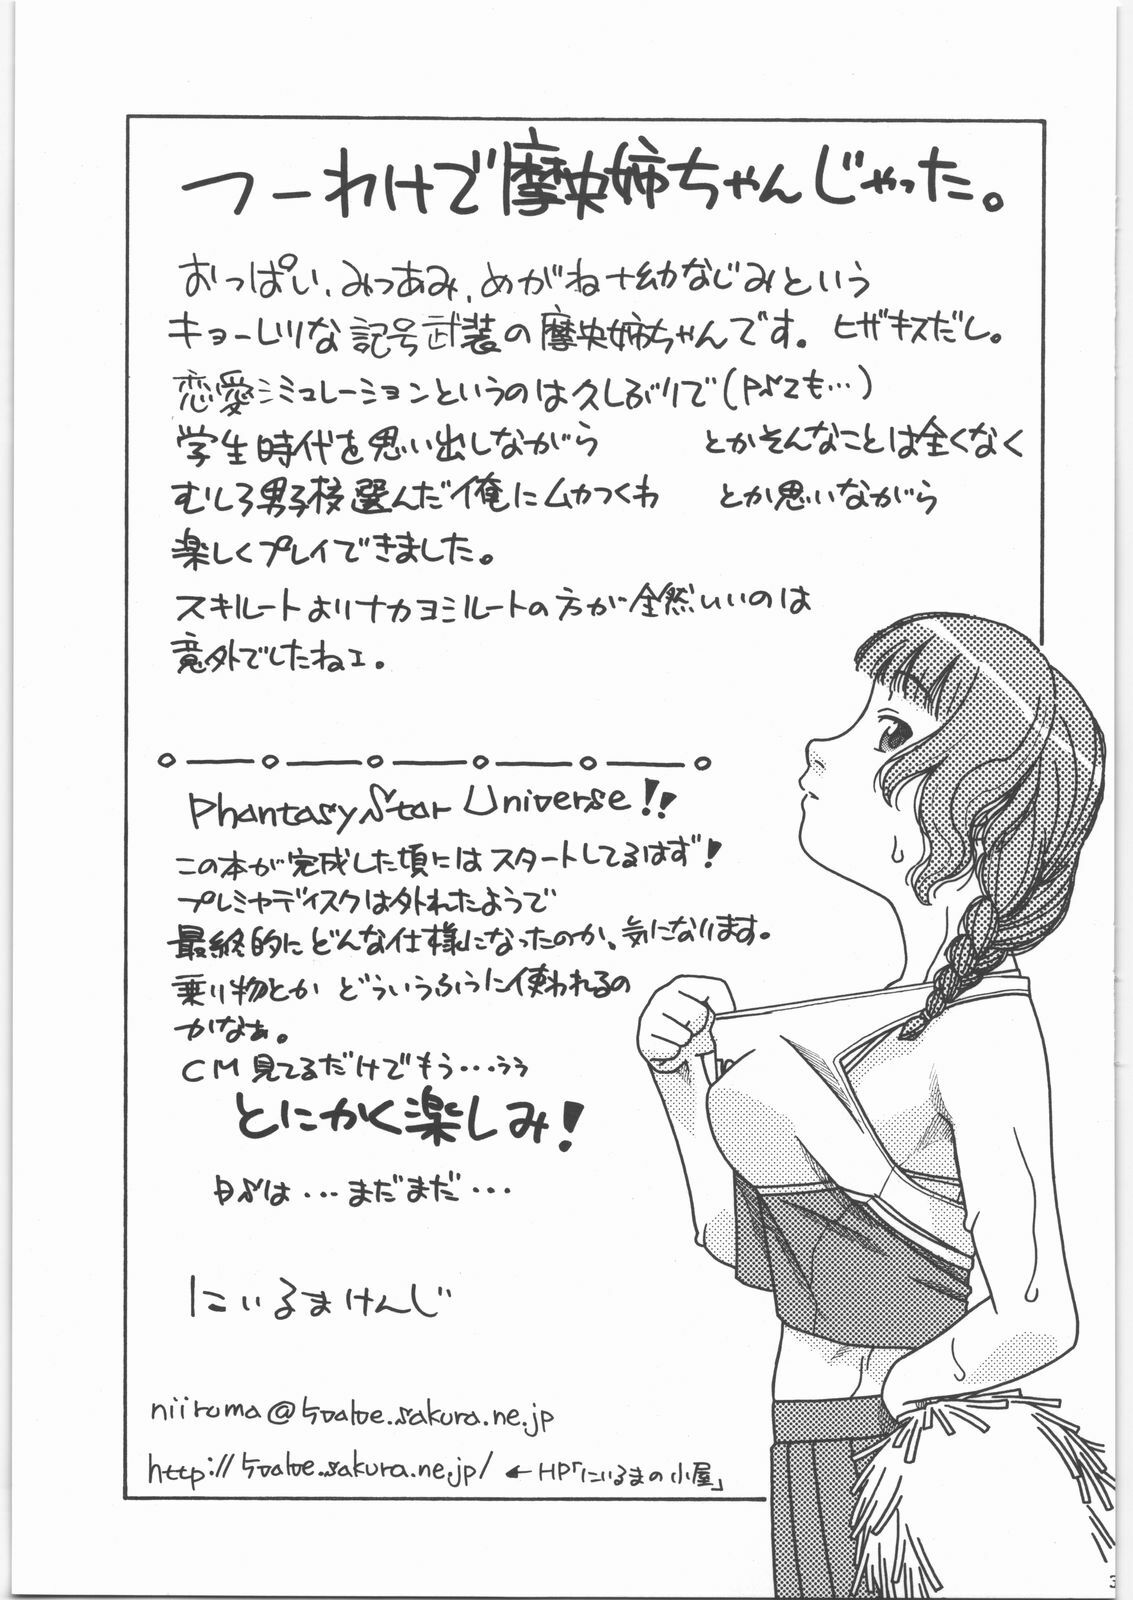 つーわけで摩央姉ちゃんじゃった。
おっぱい、みつあみ、めがね+幼なじみという
キョーレツな記号武装の摩央姉ちゃんです。ヒザキスだし。
恋愛シミュレーションというのは久しぶりで(PS2も…)
学生時代を思い出しながら　とかそんなことは全くなく
むしろ男子校選んだ俺にムカつくわ　とか思いながら
楽しくプレイできました。
スキルートよりナカヨシルートの方が全然いいのは
意外でしたねェ。
Phantasy Star Universe!!
この本が完成した頃にはスタートしてるはず!
プレミヤディスクは外れたようで
最終的にどんな仕様になったのか、気になります。
乗り物とか どういうふうに使われるの
かなぁ。
CM見てるだけでもう…うぅ
とにかく楽しみ!
は…まだまだ…
にいるまけんじ
niiruma@.sakura.ne.jp
http://.sakura.ne.jp/ ←HP「にいるまの小屋」
3